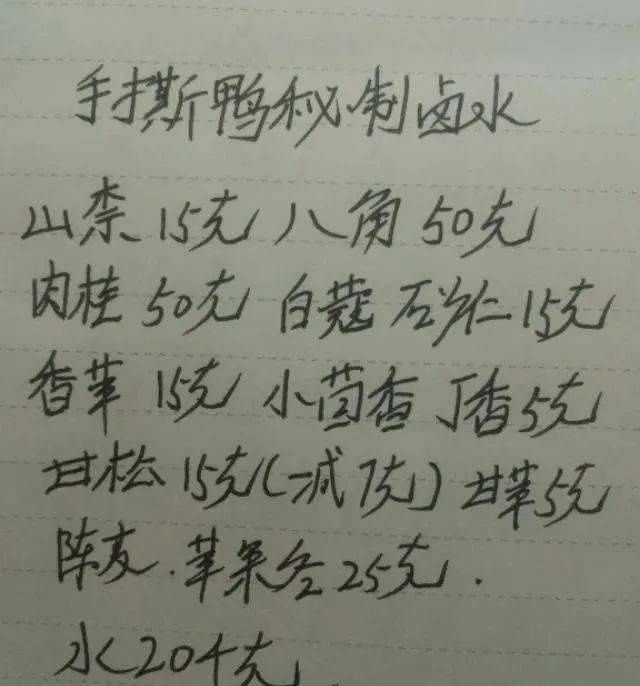 手撕鸭秘制卤水
山柰 15克 八角 50克
肉桂 50克 白蔻 砂仁 15克
香草 15克 小茴香 丁香 5克
甘松 15克(一减7克) 甘草5克
陈皮.草果各25克.
水20千克